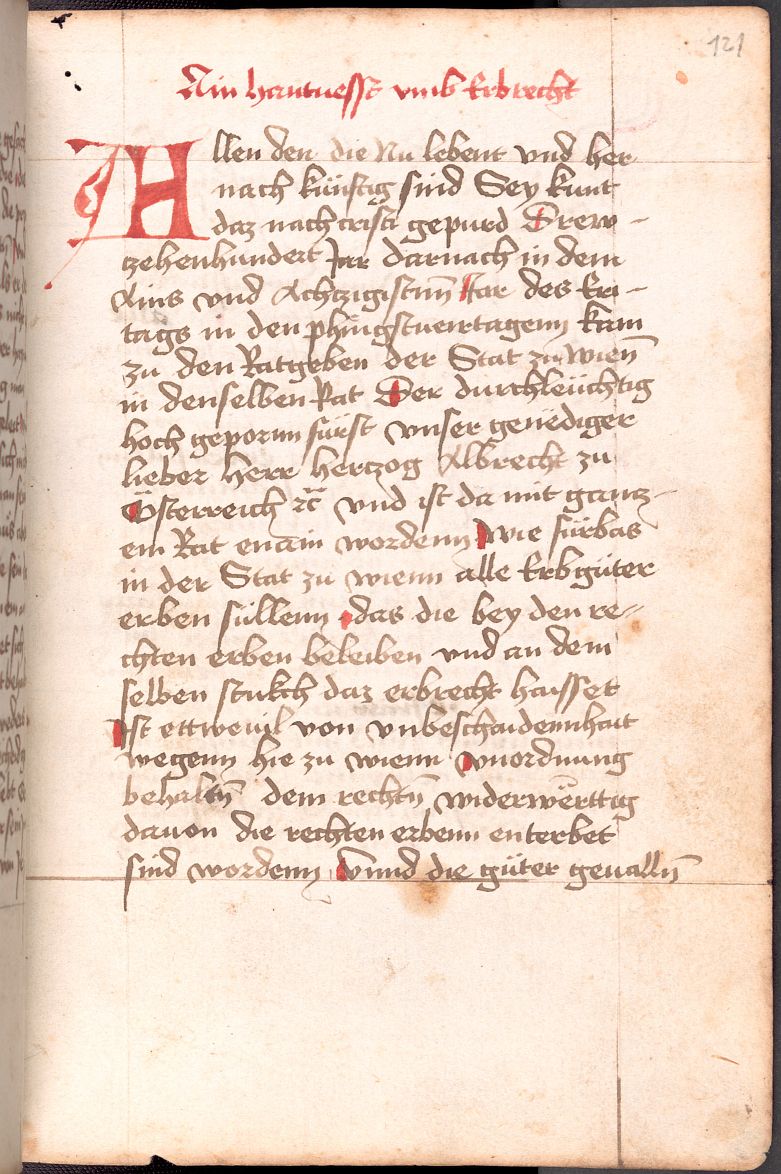 121
Ain hantuesst vmb Erbrecht
Allen den die Nu lebent vnd her
nach künftig sind Sey kunt
daz nach cristi gepurd Drew-
tzehenhundert Jar darnach in dem
Ains vnd Achtzigistm̄ Jar des Eri-
tags in den phingstueirtagenn kam
zu den Ratgeben der Stat zu Wienn̄
in denselben Rat Der durchleüchtig
hoch gepornn fürst vnser genediger
lieber herr hertzog Albrecht zu
Österreich ꝛc̄ vnd ist da mit gantz-
em Rat enain wordenn wie fürbas
in der Stat zu wienn alle Erbgüter
erben süllenn das die bey den re-
chten erben beleiben vnd an dem
selben stukch daz erbrecht haisset
Ist ettweuil von vnbeschaidennhait
wegenn hie zu wienn vnordnung
behaltn̄ dem rechtn̄ widerwërttig
dauon die rechten erbenn enterbet
sind wordenn Vnnd die güter geualln̄